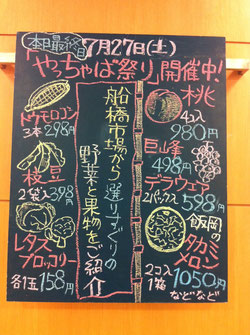 本日最終日
7月27日(土)
やっちゃば祭り開催中!
船橋市場から選りすぐりの
野菜と果物をご紹介
トウモロコシ
3本298円
枝豆
2袋398円
レタス
ブロッコリー
各1玉158円
桃
4コ入
980円
巨山峰
498円
デラウェア
2パックス598円
飯岡の
タカミ
メロン
2コ入
1箱
1050円
などなど